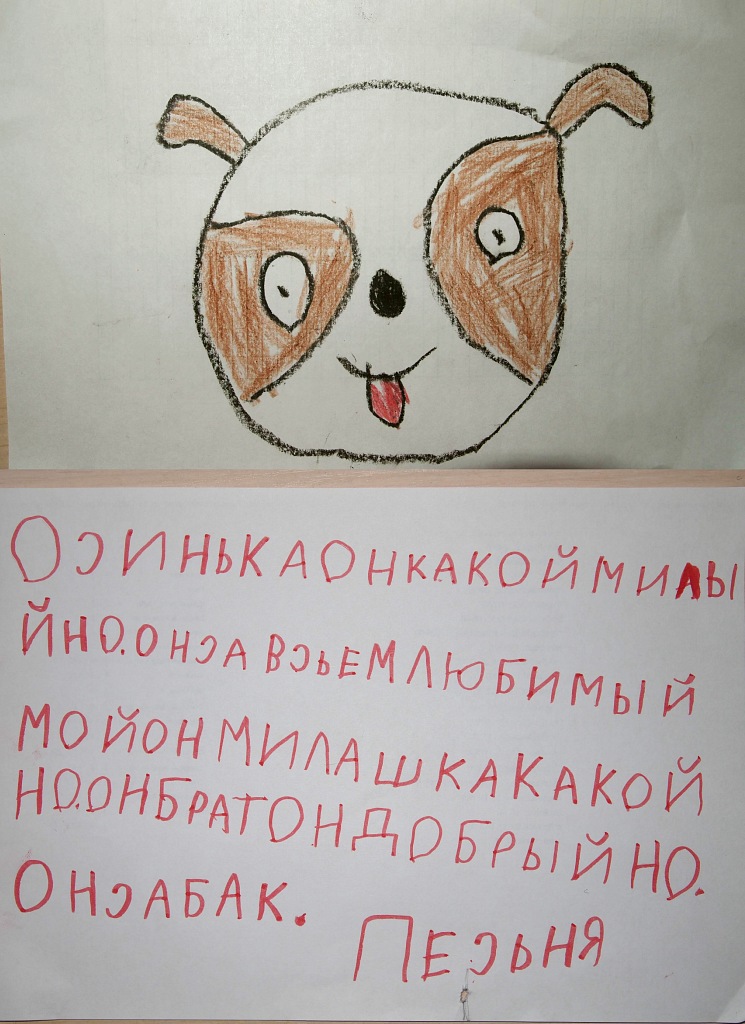 ОСИНЬКАОНКАКОЙМИЛЫ
ЙНО.ОНСАВСЬЕМЛЮБИМЫЙ
МОЙОНМИЛАШКАКАКОЙ
НО.ОНБРАТОНДОБРЫЙНО.
ОНСАБАК.
ПЕСЬНЯ